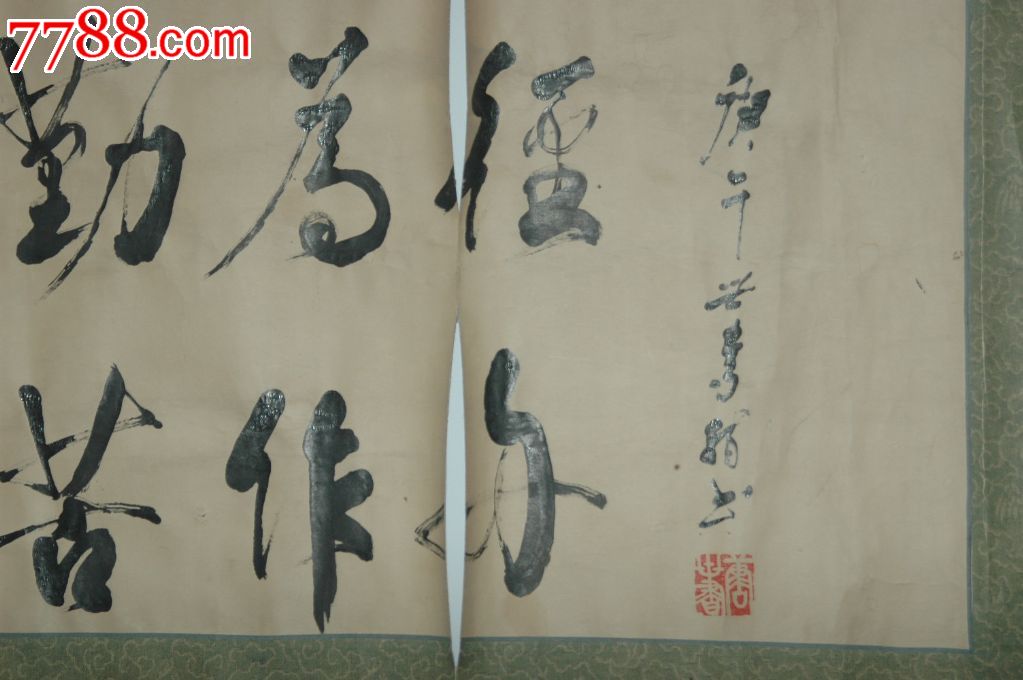 7788.com
勤為徑
苦作舟
庚午
书